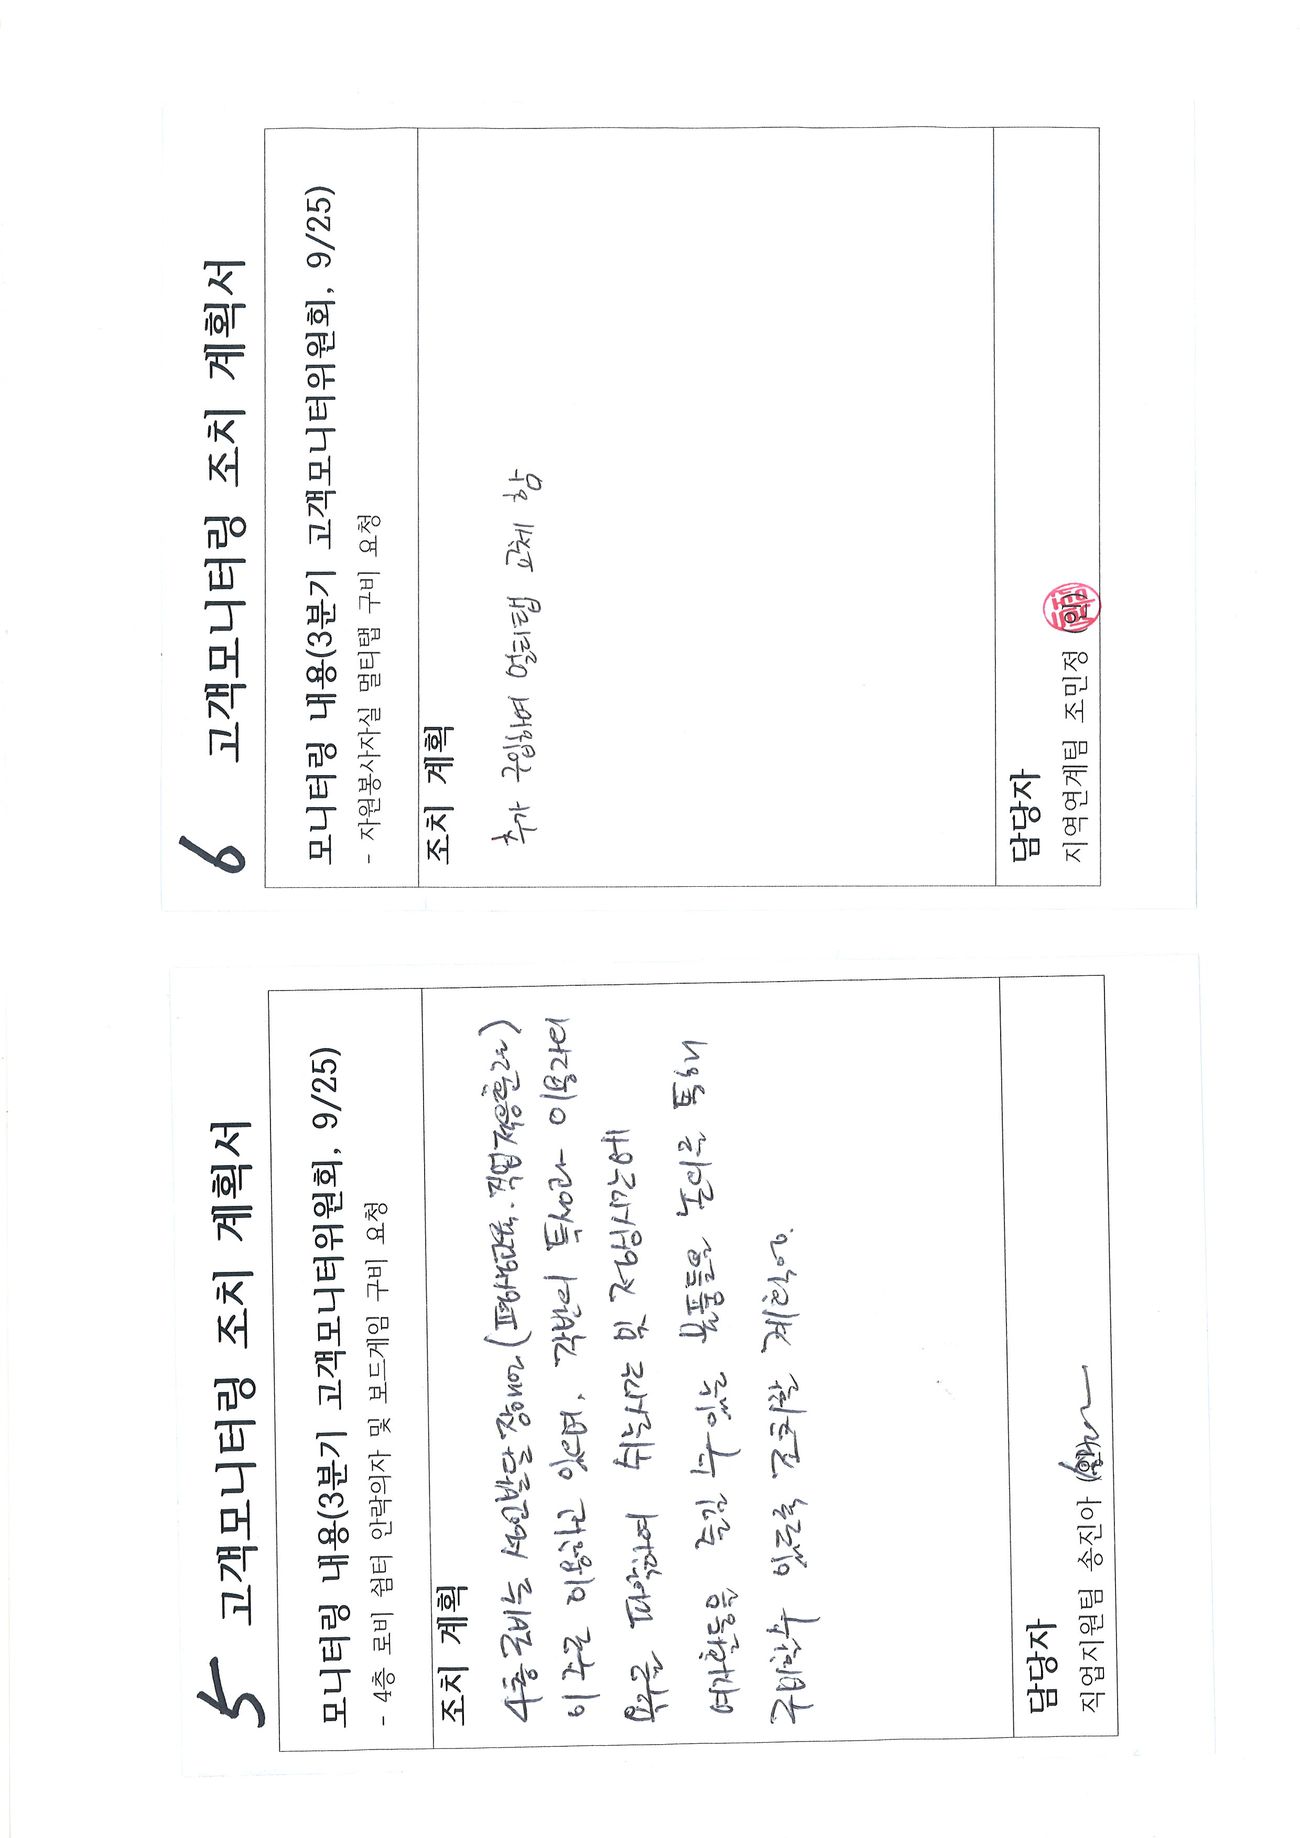 5 고객모니터링 조치 계획서
모니터링 내용(3분기 고객모니터위원회, 9/25)
- 4층 로비 쉼터 안락의자 및 보드게임 구비 요청
조치 계획
4층 로비는 성인발달장애인(평생교육·직업적응훈련)
이 주로 이용하고 있으며, 각반의 특성과 이용자의
욕구를 파악하여 쉬는시간 및 점심시간에
여가활동을 즐길 수 있는 물품들을 논의를 통해
구비할수 있도록 조치할 계획임.
담당자
직업지원팀 송진아 (인)
6 고객모니터링 조치 계획서
모니터링 내용(3분기 고객모니터위원회, 9/25)
- 자원봉사자실 멀티탭 구비 요청
조치 계획
추가 구입하여 멀티탭 교체 함
담당자
지역연계팀 조민정 (인)